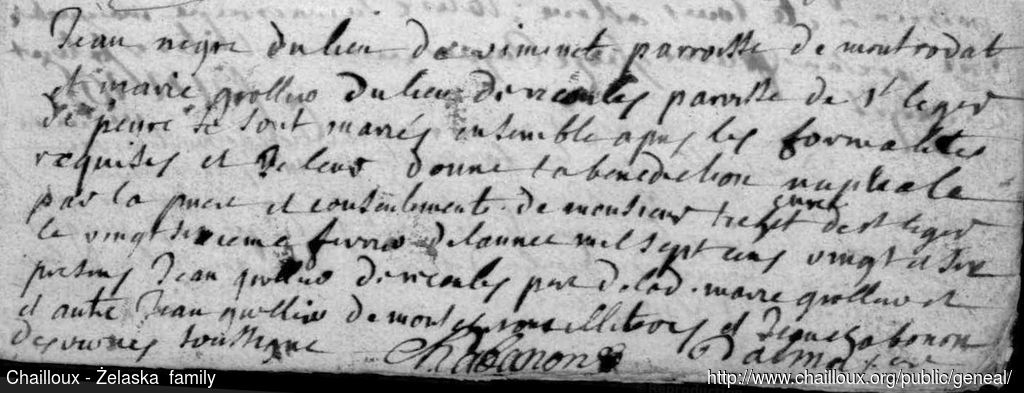 Jean negre du lieu de viminet parroisse de montrodat
et marie grollier du lieu de recoules parroisse de st leger
de peyre se sont mariés ensemble apres les formalites
requises et je leur donne la benediction nuptiale
par la priere et consentement de monsieur curé de st leger
le vingt sixieme fevrier de l'annee mil sept cens vingt et six
presens Jean grollier de recoules pere de lad. marie grollier et
et autre Jean grollier de illiteres et Jean chabanon
des soussigne Chabanon
Chailloux - Żelaska family
http://www.chailloux.org/public/geneal/